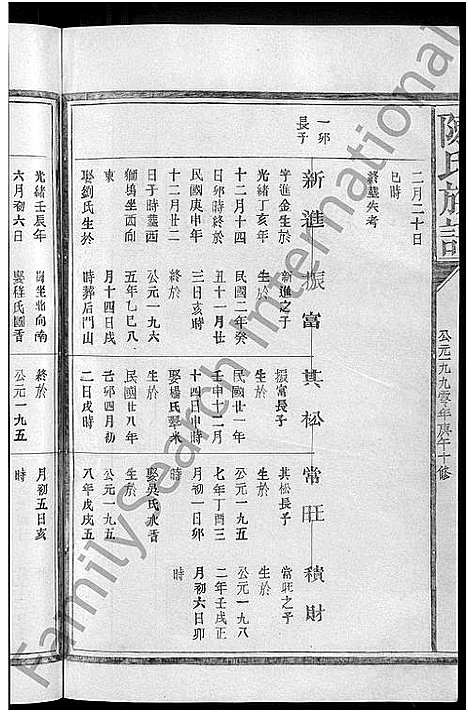 陳氏族譜
公元一九九零年庚午十修
二月二十日
巳時
終塟失考
一卯
長子
新進
字進金生於
光緒丁亥年
十二月十四
日卯時終於
民國庚申年
十二月廿二
日子時塟酉
獅塢坐西向
東
娶劉氏生於
光緒壬辰年
六月初六日
振富
新進之子
生於
民國二年癸
丑十一月廿
三日亥時
終於
公元一九六
五年乙巳八
月十四日戌
時葬后門山
坐北向南
娶程氏國香
其松
振富長子
生於
民國廿一年
壬申十二月
十四日申時
娶楊氏翠米
生於
民國廿八年
己卯四月初
二日戌時
終於
公元一九五
常旺
其松長子
生於
公元一九五
七年丁酉三
月初一日卯
時
娶吳氏水香
生於
公元一九五
八年戊戌五
月初五日亥
時
積財
常旺之子
生於
公元一九八
二年壬戌正
月初六日卯
時
FamilySearch International